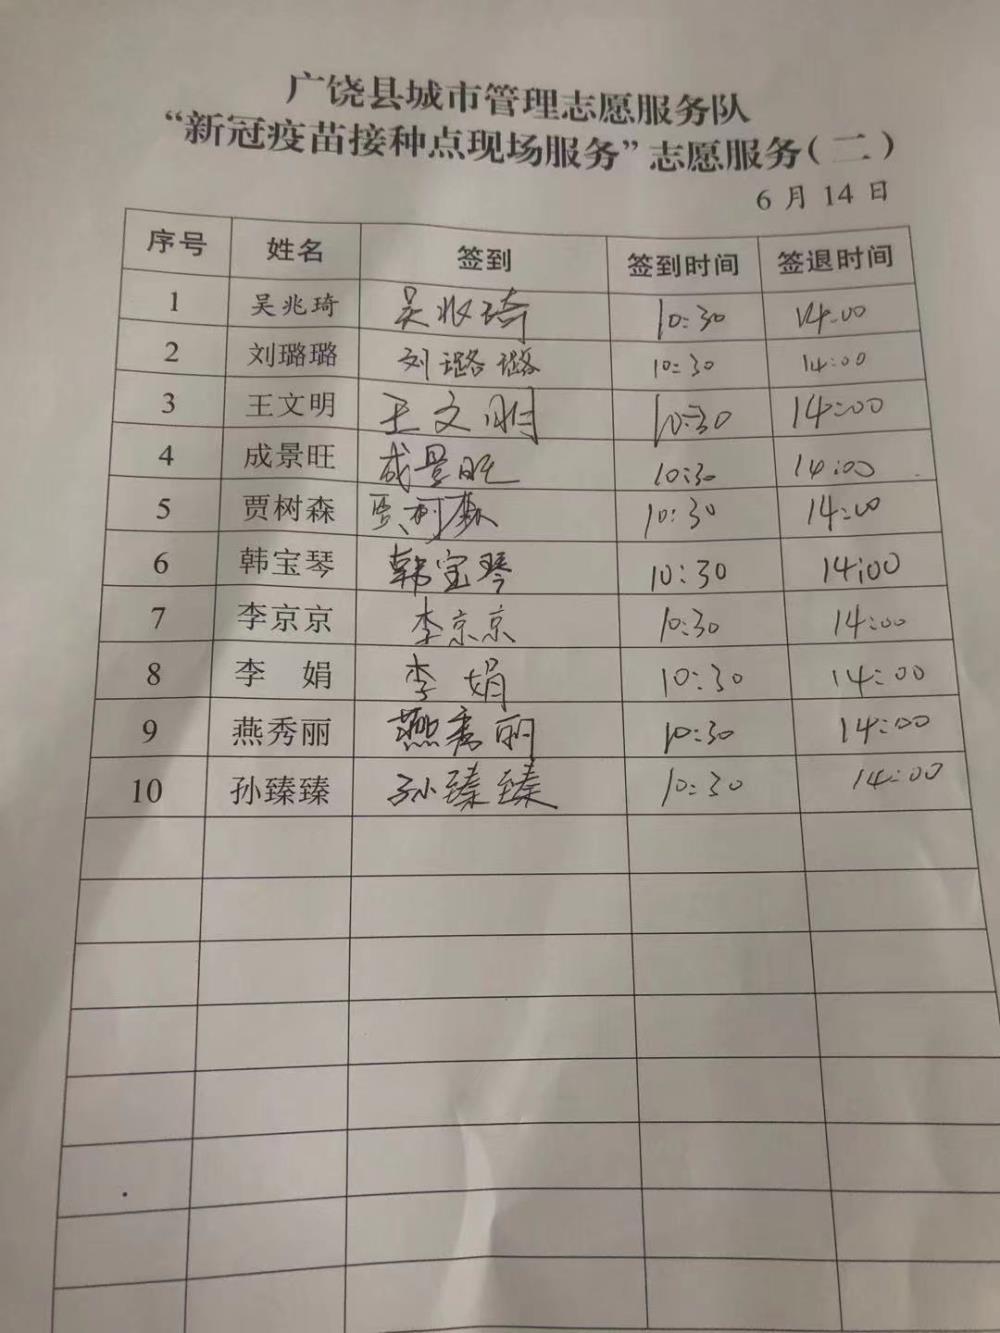 广饶县城市管理志愿服务队
“新冠疫苗接种点现场服务”志愿服务（二）
6 月 14 日
序号 姓名 签到 签到时间 签退时间
1 吴兆琦 吴兆琦 10:30 14:00
2 刘璐璐 刘璐璐 10:30 14:00
3 王文明 王文明 10:30 14:00
4 成景旺 成景旺 10:30 14:00
5 贾树森 贾树森 10:30 14:00
6 韩宝琴 韩宝琴 10:30 14:00
7 李京京 李京京 10:30 14:00
8 李 娟 李 娟 10:30 14:00
9 燕秀丽 燕秀丽 10:30 14:00
10 孙臻臻 孙臻臻 10:30 14:00